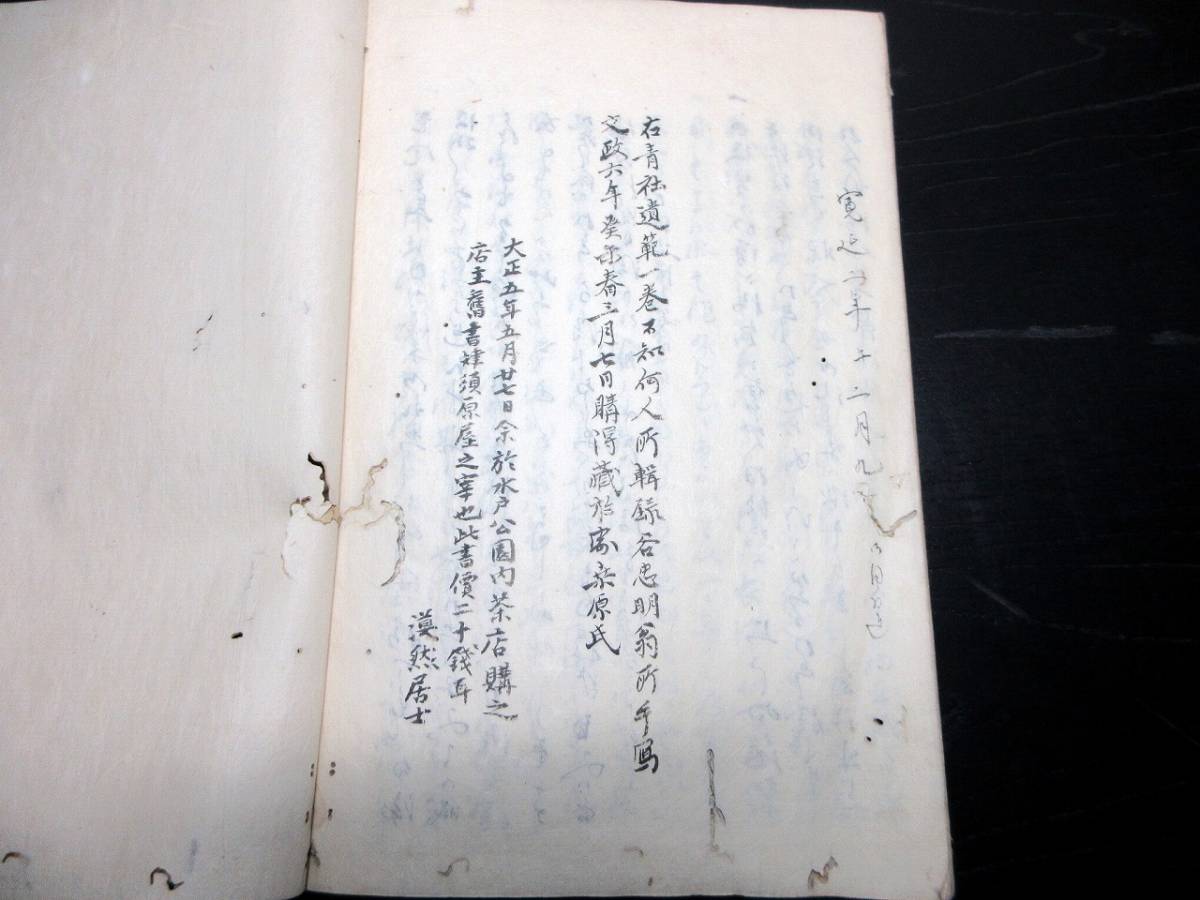 寛延二年十二月九日
右青社遺範一卷不知何人所輯録谷忠明翁所手寫
文政六年癸未春三月七日購得藏於家桑原氏
大正五年五月廿七日余於水戸公園内茶店購之
店主舊書肆須原屋之宰也此書價二十錢耳
漠然居士